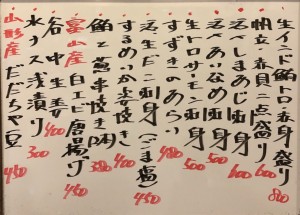 生インド鮪トロ赤身盛り 800
帆立赤貝二点盛り 600
活〆しまあじ刺身 600
活〆あいなめ刺身 500
生トロサーモン刺身 500
すずきのあらい 480
活生だこ刺身(ごま塩) 450
するめいか姿焼き 400
鮪と葱串焼き(2本) 380
富山産 白エビ唐揚げ 450
谷中生姜 400
水ナス浅漬り 300
山形産 だだちゃ豆 450